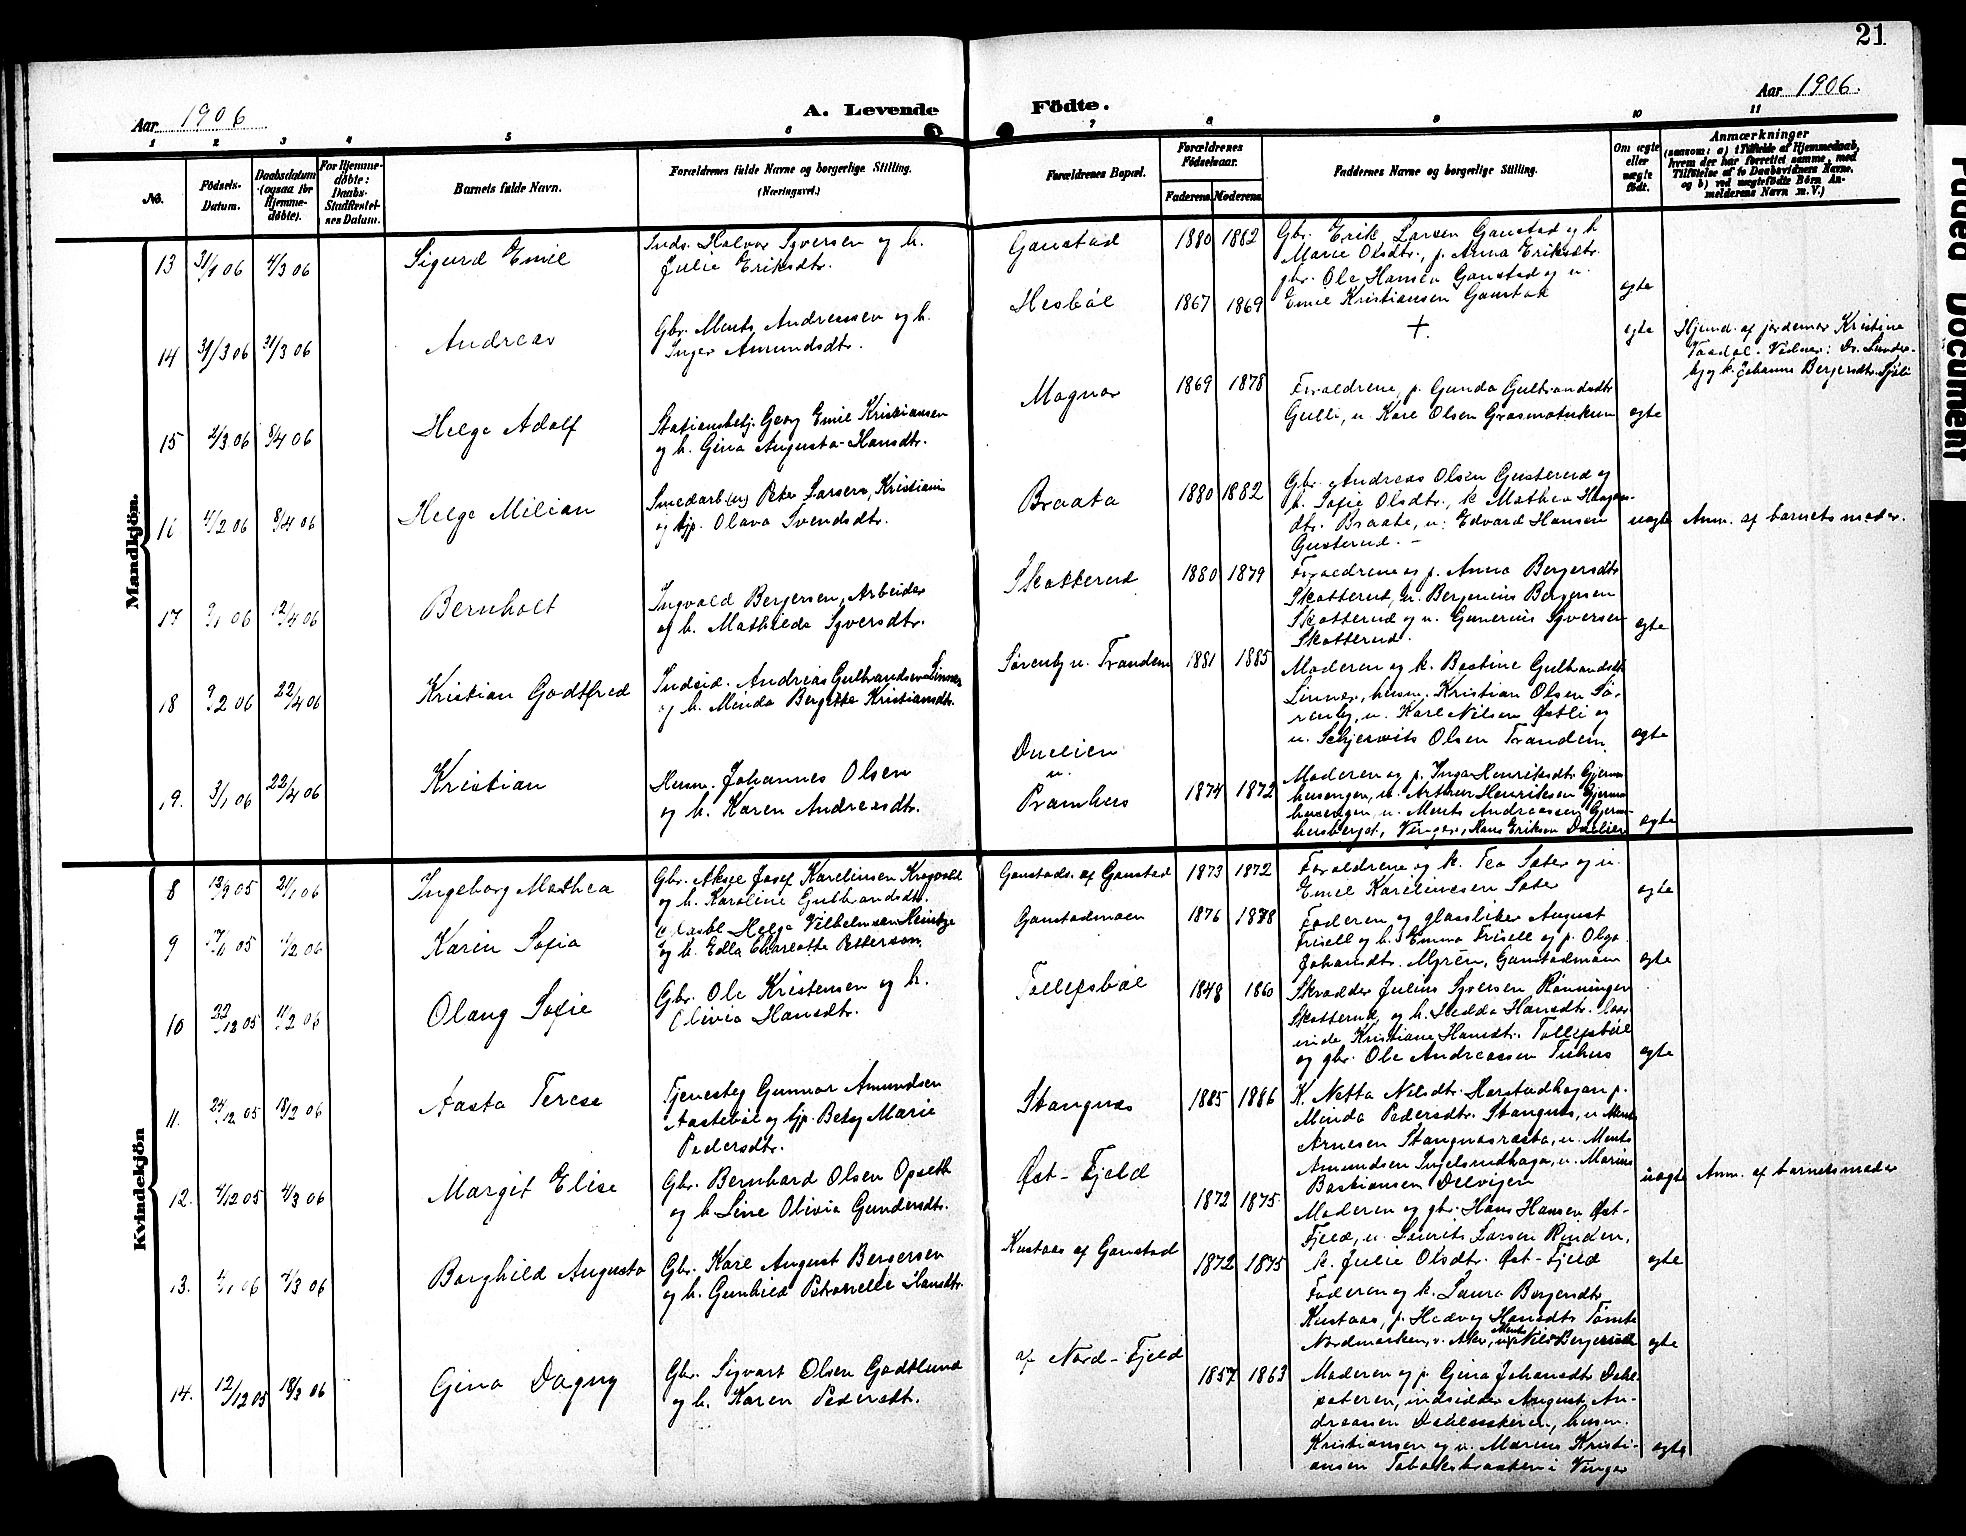 21
Aar 1906
A. Levende
Födte.
Aar 1906.
1 2 3 4 5 6 7 8 9 10 11
No.
Födsels-Datum.
Daabsdatum (ogsaa for Hjemmedöbte).
For Hjemmedöbte: Daabs-Stadfæstelsens Datum.
Barnets fulde Navn.
Forældrenes fulde Navne og borgerlige Stilling. (Næringsvei.)
Forældrenes Bopæl.
Forældrenes Födselsaar.
Faderens. Moderens.
Faddernes Navne og borgerlige Stilling.
Om ægte eller uægte födt.
Anmærkninger
(saasom: a) i Tilfælde af Hjemmedaab, hvem der har forrettet samme, med Tilföielse af to Daabsvidners Navne, og b) ved uægtefödte Börn Anmelderens Navn m. V.)
Mandkjön.
13 31/1 06 4/3 06 Sigurd Emil
Inds. Halvor Syversen og h.
Julie Eriksdtr.
Ganstad 1880 1882
Gbr. Erik Larsen Ganstad og h
Marie Olsdtr., p. Anna Eriksdtr.
gbr. Ole Hansen Ganstad og u.
Emil Kristiansen Ganstad
egte
14 31/3 06 31/3 06 Andreas
Gbr. Ments Andreassen og h.
Inger Amundsdtr.
Hesbøl 1867 1869
+
egte
Hjemd. af jordemor Kristine
Vidner: Dr.
og k. Johanne Bergersdtr.
15 2/3 06 8/4 06 Helge Adolf
Stationsbetj. Georg Emil Kristiansen
og h. Gina Augusta Hansdtr.
Magnor 1869 1878
Forældrene, p. Gunda Gulbrandsdtr
Gulli, u. Karl Olsen
egte
16 4/2 06 8/4 06 Helge Milian
Peter Larsen, Kristiania
og tjp. Olava Svendsdtr.
Braata 1880 1882
Gbr. Andreas Olsen Gusterud og
h. Sofie Olsdtr., k Mathea
dtr. Braate, u. Edvard Hansen
Gusterud. –
uegte Anm. af barnets moder.
17 9/1 06 12/4 06 Bernholt
Ingvald Bergersen, Arbeider
og h. Mathilde Syversdtr.
Skotterud 1880 1879
Forældrene og p. Anna Bergersdtr
Skotterud, u. Bergenius Bergersen
Skotterud og u. Gunerius Syversen
Skotterud.
egte
18 9/2 06 22/4 06 Kristian Godtfred
Indsid. Andreas Gulbrandsen Linner
og h. Minda Bergitte Kristiansdtr.
Sørenby u. Trandem 1881 1885
Moderen og k. Bastine Gulbrandsdtr
Linner, husm. Kristian Olsen Sø-
renby, u. Karl Nilsen Østli og
u. Olsen Trandem.
egte
19. 3/1 06 22/4 06 Kristian
Husm. Johannes Olsen
og h. Karen Andreasdtr.
u.
Pramhus 1874 1872
Moderen og p. Inga Henriksdtr
u. Arthur Henriksen
u. Ments Andreassen
Vinger, Hans Eriksen
egte
Kvindekjön
8 12/9 05 21/1 06 Ingeborg Mathea
Gbr. Aksel Josef Karelinsen Krogvold
og h. Karoline Gulbrandsdtr.
Ganstads. af Ganstad 1873 1872
Forældrene og k. Tea Sæter og u.
Emil Karelinesen Sæter
egte
9 05 4/2 06 Karin Sofia
Helge Vilhelmsen
og h. Edla Charlotta Petterson
Ganstadmoen 1876 1878
Faderen og glassliber August
Frisell og h. Emma Frisell og p. Olga
Johansdtr. Myren, Ganstadmoen
egte
10 22/12 05 11/2 06 Olaug Sofie
Gbr. Ole Kristensen og h.
Olivia Hansdtr.
Tollefsbøl 1848 1860
Skrædder Julius Syversen Rønningen
Skotterud, og h. Hedda Hansdtr.
Kristiane Hansdtr. Tollefsbøl
og gbr. Ole Andreassen Tuhus
egte
11. 24/12 05 18/2 06 Aasta Terese
Tjenesteg Gunnar Amundsen
Aastebøl og tjp. Betzy Marie
Pedersdtr.
Stangnæs 1885 1886
K. Netta Nilsdtr. Harstadhagan p.
Minda Pedersdtr. Stangnæs, u. Ments
Arnesen u. Ments
Amundsen u. Marius
Bastiansen
uegte Anm. af barnets moder
12. 4/12 05 4/3 06 Margit Elise
Gbr. Bernhard Olsen Opseth
og h Line Olivia Gundersdtr.
Øst-Fjeld 1872 1875
Moderen og gbr. Hans Hansen Øst-
Fjeld, u. Laurits Larsen Rinden,
k. Julie Olsdtr. Øst-Fjeld
egte
13. 06 4/3 06 Borghild Augusta
Gbr. Karl August Bergersen
og h. Gunhild Petronelle Hansdtr.
Kustaas af Ganstad 1872 1875
Faderen og k. Laura Bergersdtr
Kustaas, p. Hedvig Hansdtr
Nordmarken,
egte
14. 12/12 05 18/3 06 Gina Dagny
Gbr. Sigvart Olsen Godtlund
og h. Karen Pedersdtr.
af Nord-Fjeld 1857 1863
Moderen og p. Gina Johansdtr
indsidder August An-
dreassen husm.
Kristiansen og u. Marius Kristi-
ansen i Vinger
egte
Faded Document